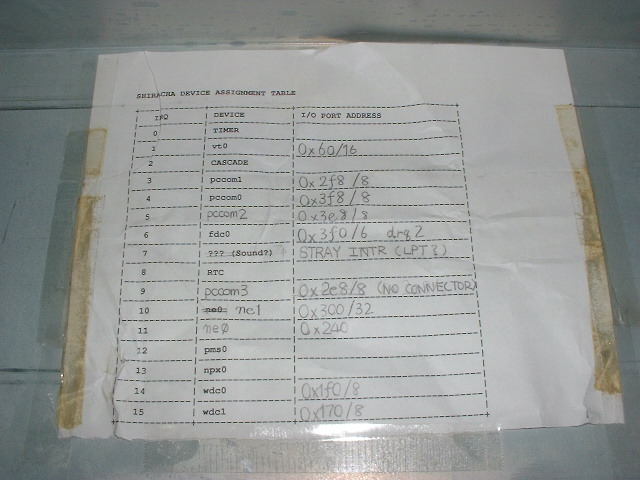 SRIRACHA DEVICE ASSIGNMENT TABLE
IRQ DEVICE I/O PORT ADDRESS
0 TIMER
1 vt0 0x60/16
2 CASCADE
3 pccom1 0x2f8/8
4 pccom0 0x3f8/8
5 pccom2 0x3e8/8
6 fdc0 0x3f0/6 drq2
7 ??? (Sound?) STRAY INTR (LPT?)
8 RTC
9 pccom3 0x2e8/8 (NO CONNECTOR)
10 ne0 ne1 0x300/32
11 ne0 0x240
12 pms0
13 npx0
14 wdc0 0x1f0/8
15 wdc1 0x170/8